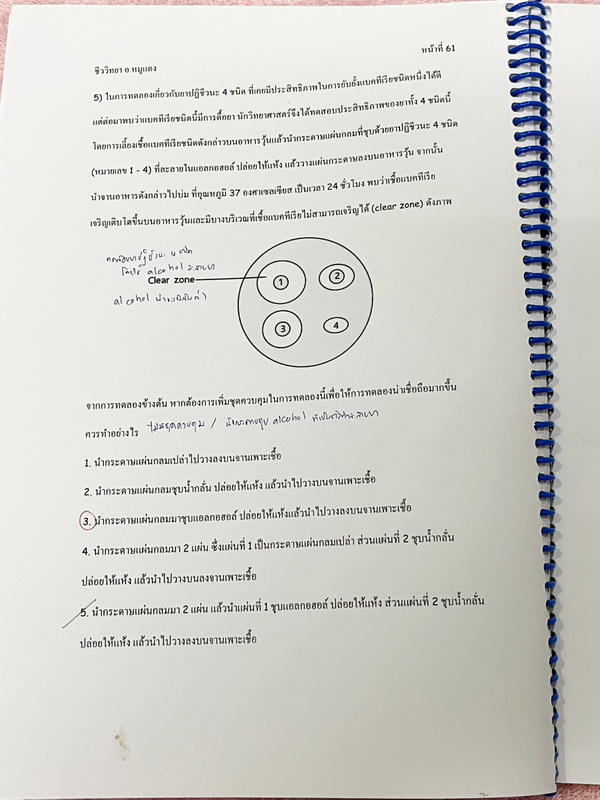 หน้าที่ 61
ชีววิทยา อ.หมูแดง
5) ในการทดลองเกี่ยวกับยาปฏิชีวนะ 4 ชนิด ที่เคยมีประสิทธิภาพในการยับยั้งแบคทีเรียชนิดหนึ่งได้ดี
แต่ต่อมาพบว่าแบคทีเรียชนิดนี้มีการดื้อยา นักวิทยาศาสตร์จึงได้ทดสอบประสิทธิภาพของยาทั้ง 4 ชนิดนี้
โดยการเลี้ยงเชื้อแบคทีเรียชนิดดังกล่าวบนอาหารวุ้นแล้วนำกระดาษแผ่นกลมที่ชุบด้วยยาปฏิชีวนะ 4 ชนิด
(หมายเลข 1 - 4) ที่ละลายในแอลกอฮอล์ ปล่อยให้แห้ง แล้ววางแผ่นกระดาษลงบนอาหารวุ้น จากนั้น
นำจานอาหารดังกล่าวไปบ่ม ที่อุณหภูมิ 37 องศาเซลเซียส เป็นเวลา 24 ชั่วโมง พบว่าเชื้อแบคทีเรีย
เจริญเติบโตขึ้นบนอาหารวุ้นและมีบางบริเวณที่เชื้อแบคทีเรียไม่สามารถเจริญได้ (clear zone) ดังภาพ
alcohol
Clear zone
1
2
alcohol
3
4
จากการทดลองข้างต้น หากต้องการเพิ่มชุดควบคุมในการทดลองนี้เพื่อให้การทดลองน่าเชื่อถือมากขึ้น
ควรทำอย่างไร ไม่มีชุดควบคุม / alcohol
1. นำกระดาษแผ่นกลมเปล่าไปวางลงบนจานเพาะเชื้อ
2. นำกระดาษแผ่นกลมชุบน้ำกลั่น ปล่อยให้แห้ง แล้วนำไปวางบนจานเพาะเชื้อ
3. นำกระดาษแผ่นกลมมาชุบแอลกอฮอล์ ปล่อยให้แห้งแล้วนำไปวางลงบนจานเพาะเชื้อ
4. นำกระดาษแผ่นกลมมา 2 แผ่น ซึ่งแผ่นที่ 1 เป็นกระดาษแผ่นกลมเปล่า ส่วนแผ่นที่ 2 ชุบน้ำกลั่น
ปล่อยให้แห้ง แล้วนำไปวางบนลงจานเพาะเชื้อ
5. นำกระดาษแผ่นกลมมา 2 แผ่น แล้วนำแผ่นที่ 1 ชุบแอลกอฮอล์ ปล่อยให้แห้ง ส่วนแผ่นที่ 2 ชุบน้ำกลั่น
ปล่อยให้แห้ง แล้วนำไปวางลงบนจานเพาะเชื้อ